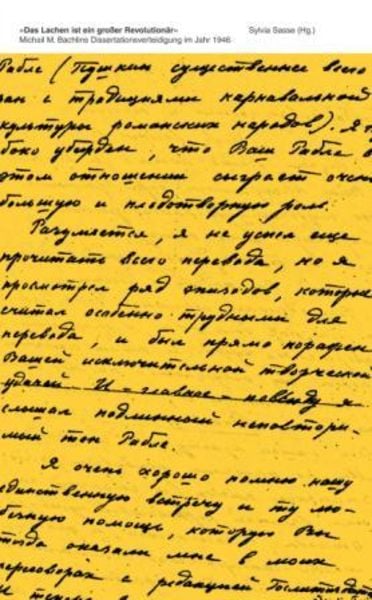 »Das Lachen ist ein großer Revolutionär« Sylvia Sasse (Hg.)
Michail M. Bachtins Dissertationsverteidigung im Jahr 1946
Рабле (Пушкин существеннее всего
зан с традициями карнавальной
культуры романских народов). Я г
боко убежден, что Ваш Рабле в
этом отношении сыграет очень
большую и плодотворную роль.
Разумеется, я не успел еще
прочитать всего перевода, но я
просмотрел ряд эпизодов, которые
считал особенно трудными для
перевода, и был прямо поражен
Вашей исключительной творческой
удачей. И – главное – повсюду я
слышал подлинный неповтори-
мый тон Рабле.
Я очень хорошо помню нашу
единственную встречу и ту лю-
безную помощь, которую Вы
тогда оказали мне в моих
переговорах с редакцией Гослитиздата